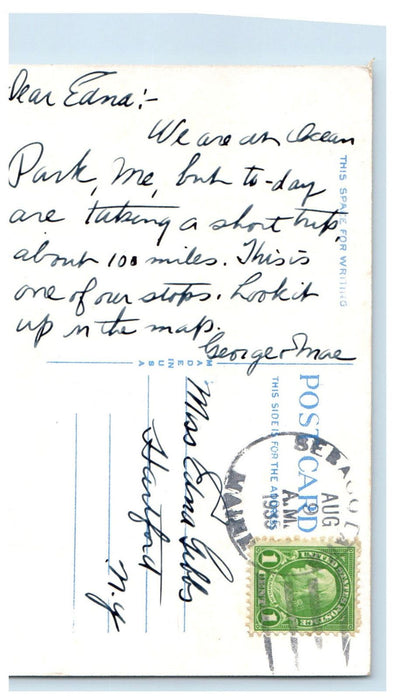 Dear Edna:-
We are at Ocean
Park, Me, but to-day
are taking a short trip,
about 100 miles. This is
one of our stops. Look it
up in the map.
George & Mae
THIS SPACE FOR WRITING
MADE IN U S A
POST CARD
THIS SIDE IS FOR THE ADDRESS
Miss Edna Gibbs
Hartford
N.Y
AUG
9
A.M.
MAINE
UNITED STATES POSTAGE
1 CENT 1